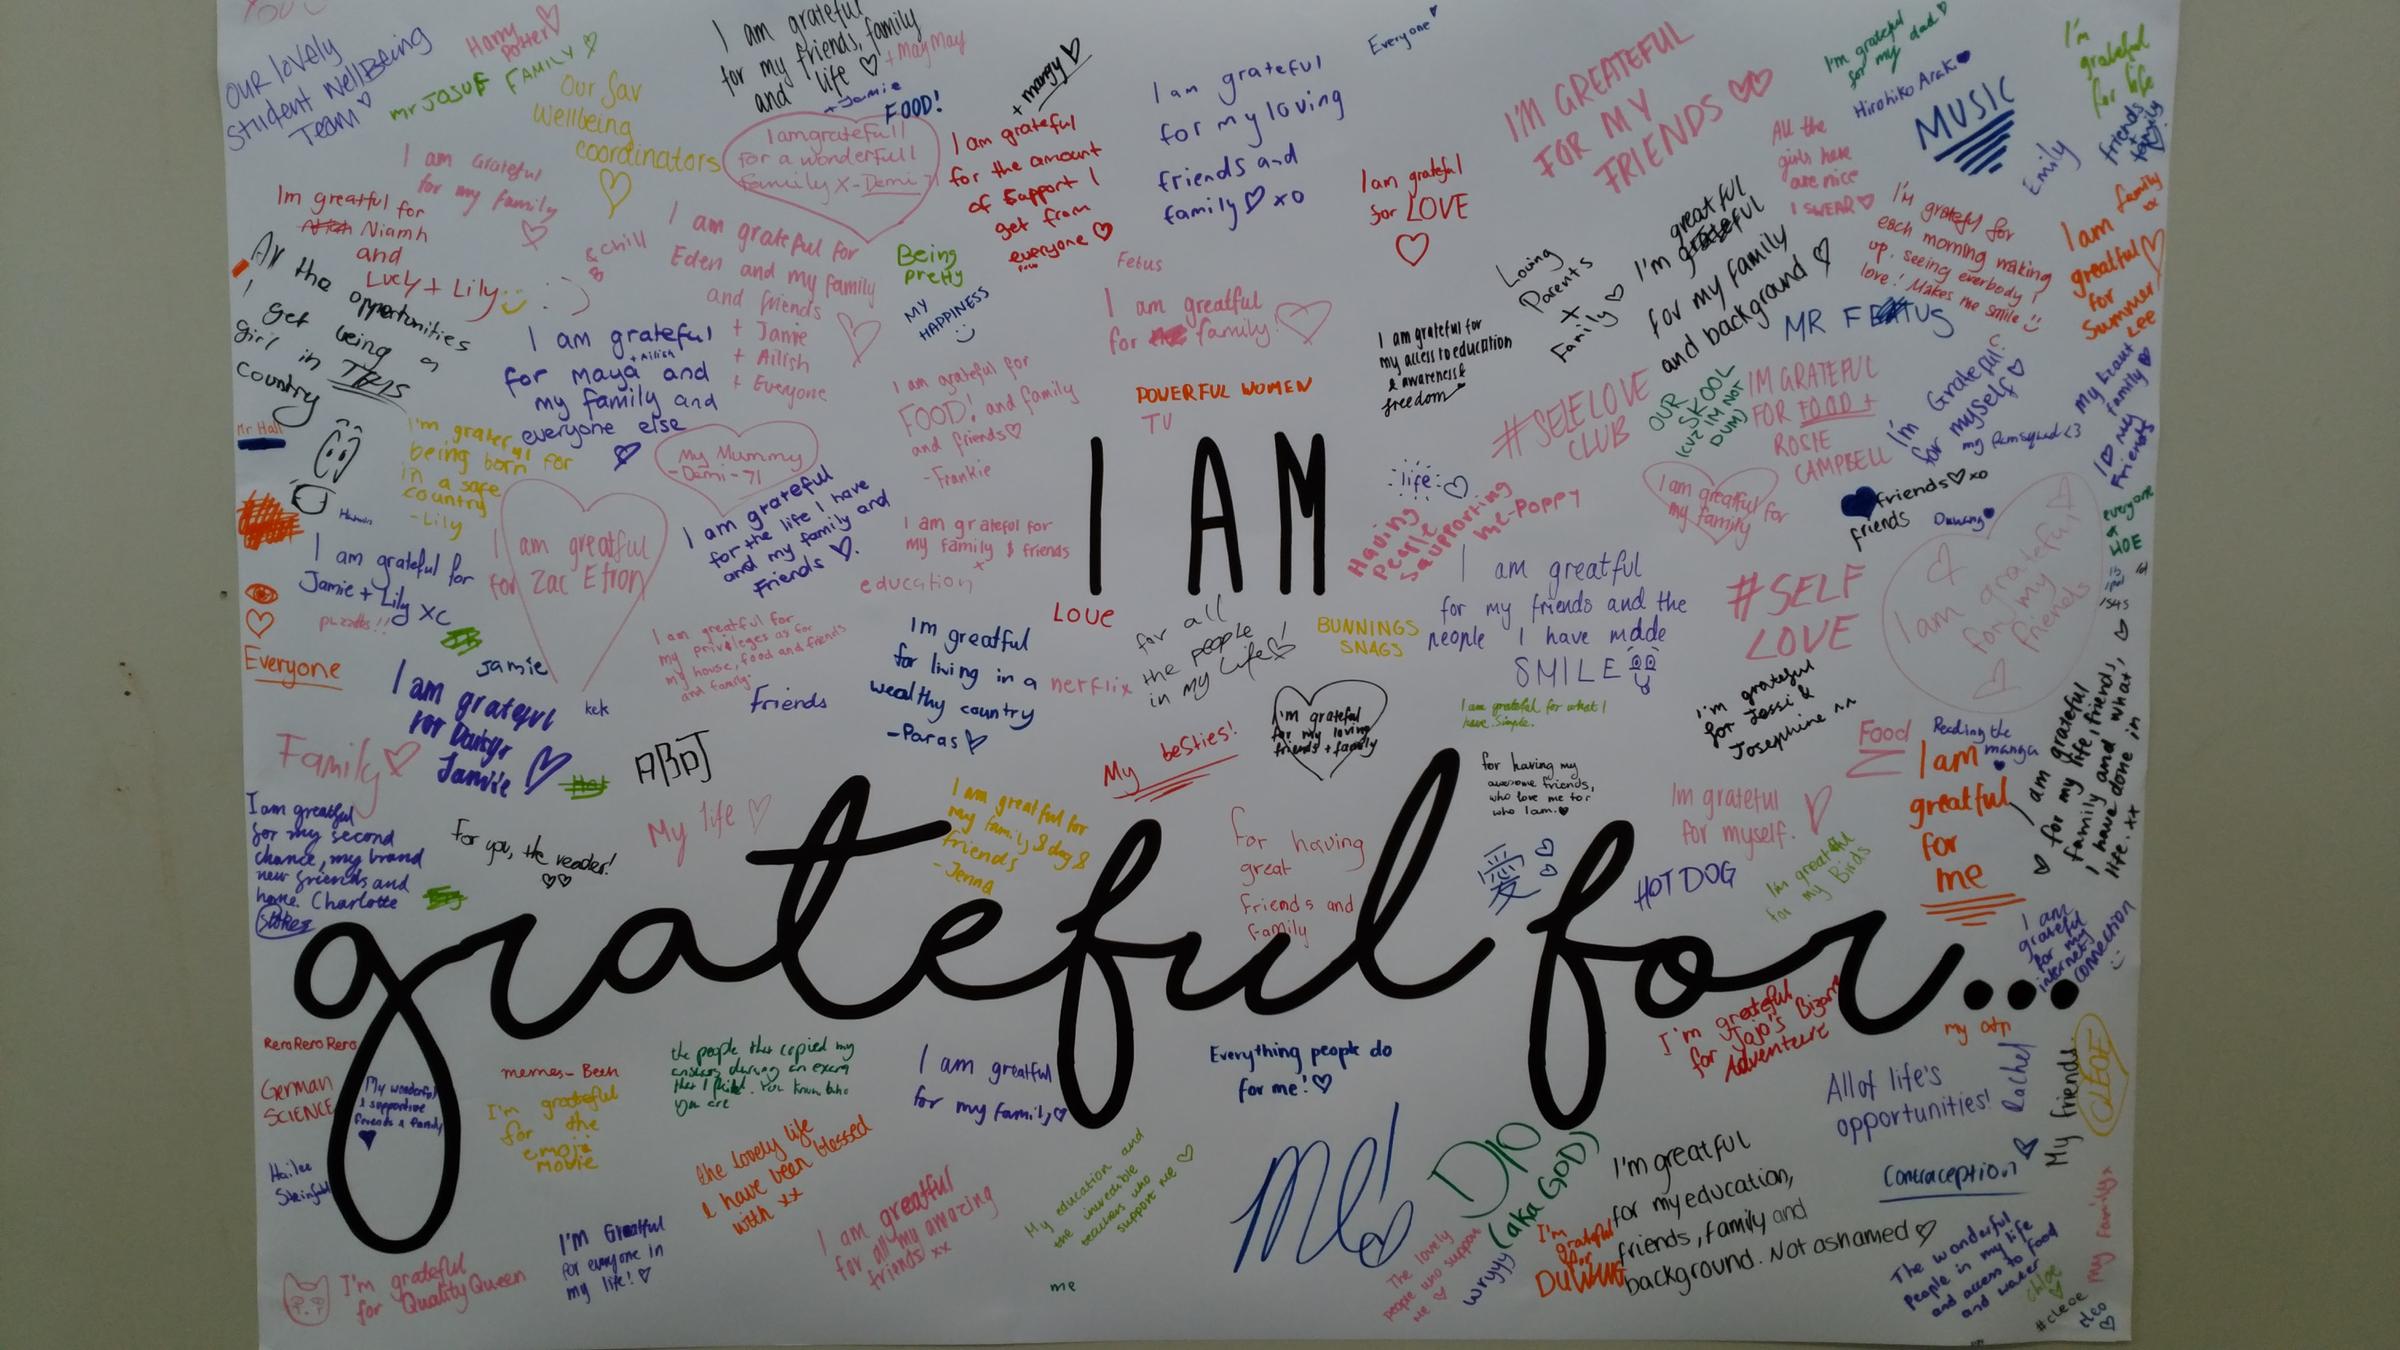 OUR lovely
Student WellBeing
Team
Harry
Potter
mr JOSUF FAMILY
Our fav
Wellbeing
coordinators
I am grateful
for my friends, family
and life
+ May May
+ Jamie
FOOD!
I am gratefull
for a wonderfull
family X - Demi
+ mangy
I am grateful
for the amount
of support I
get from
everyone
I am grateful
for my loving
friends and
family xo
Everyone
I am grateful
for LOVE
I'M GREATEFUL
FOR MY
FRIENDS
I'm grateful
for my dad
Hirohiko Araki
MUSIC
All the
girls here
are nice
I SWEAR
Emily
I'm
grateful
for life
friends
+
family
I am Grateful
for my family
Im greatful for
Niamh
and
Lucy + Lily
& chill
All the opportunities
I get being a
girl in THIS
country
I am grateful for
Eden and my family
and friends
+ Jamie
+ Ailish
+ Everyone
Being
pretty
MY
HAPPINESS
Fetus
I am greatful
for family!
POWERFUL WOMEN
TV
Loving
Parents
+
Family
greatful
I'm grateful
for my family
and background
I'm grateful for
each morning making
up, seeing everybody I
love! Makes me smile
I am
greatful
for
Summer
Lee
family
xx
MR FETUS
I am grateful for
my access to education
& awareness &
freedom
I am grateful
+ Ailish
for Maya and
my family and
everyone else
I am grateful for
FOOD! and family
and friends
- Frankie
#SELFLOVE
CLUB
OUR
SKOOL
(CUZ IM NOT
DUM)
IM GRATEFUL
FOR FOOD +
ROSIE
CAMPBELL
I'm Grateful
for myself
my famsquad <3
I ♡ my
Friends
Mr Hall
being born
in a safe
country
- Lily
My Mummy
- Demi - 71
I am grateful
for the life I have
and my family and
Friends
I am grateful for
my family & friends
+
education
I AM
life
Having
people
supporting
me - Poppy
I am greatful for
my family
friends xo
friends
Duwang
everyone
at
I am grateful for
Jamie + Lily xc
puzzles!!
I am greatful
for Zac Efron
I am greatful for
my privileges as for
my house, food and friends
and family.
Im greatful
for living in a
wealthy country
- Paras
Love
netflix
for all
the people
in my life!
BUNNINGS
SNAGS
I am greatful
for my friends and the
people I have made
SMILE
#SELF
LOVE
I am grateful
for my
friends
Everyone
Jamie
I am grateful
for Daisy
Jamie
kek
Friends
I'm grateful
for my loving
friends + family
I am grateful for what I
have. Simple.
I'm grateful
for Jessi &
Josephine
Food
Reading the
manga
I am
greatful
for
me
I am grateful
for my life, friends,
family and what
I have done in
life. xx
Family
My life
My besties!
for having my
awesome friends,
who love me for
who I am.
Im grateful
for myself.
I am greatful
for my second
chance, my brand
new friends and
home. Charlotte
Stokes
For you, the reader!
I am greatful for
my family & dog &
friends
- Jenna
for having
great
friends and
family
愛
HOT DOG
I'm greatful
for my Birds
I am
grateful
for my
internet
connection
grateful for...
Rero Rero Rero
German
SCIENCE
My wonderful
& supportive
friends & family
Hailee
Steinfeld
memes - Been
I'm grateful
for the
emoji
MOVIE
the people that copied my
answers during an exam
that I failed. You know who
you are
I am greatful
for my family
Everything people do
for me!
I'm grateful
for Jojo's Bizarre
Adventure
my otp
Rachel
CLEOE
My friends.
All of life's
opportunities!
the lovely life
I have been blessed
with xx
I am greatful
for all my amazing
friends xx
My education and
the incredible
teachers who
support me
me
ME!
DIO
(aka GOD)
wryyy
The lovely
people who support
me
I'm
grateful
for
DUWANG
I'm greatful
for my education,
friends, family and
background. Not ashamed
Contraception
The wonderful
People in my life
and access to food
and water
Chloe
#cleoe
my family x
I'm grateful
for Quality Queen
I'm Greatful
for everyone in
my life!